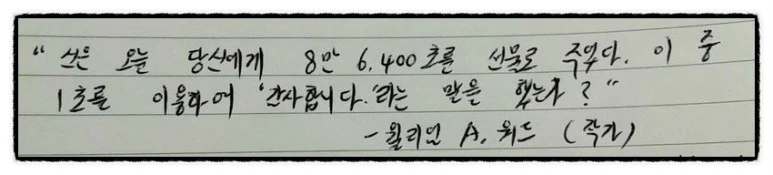 “신은 오늘 당신에게 8만 6,400초를 선물로 주었다. 이 중
1초를 이용하여 '감사합니다.'라는 말을 했는가?"
-윌리엄 A. 워드 (작가)